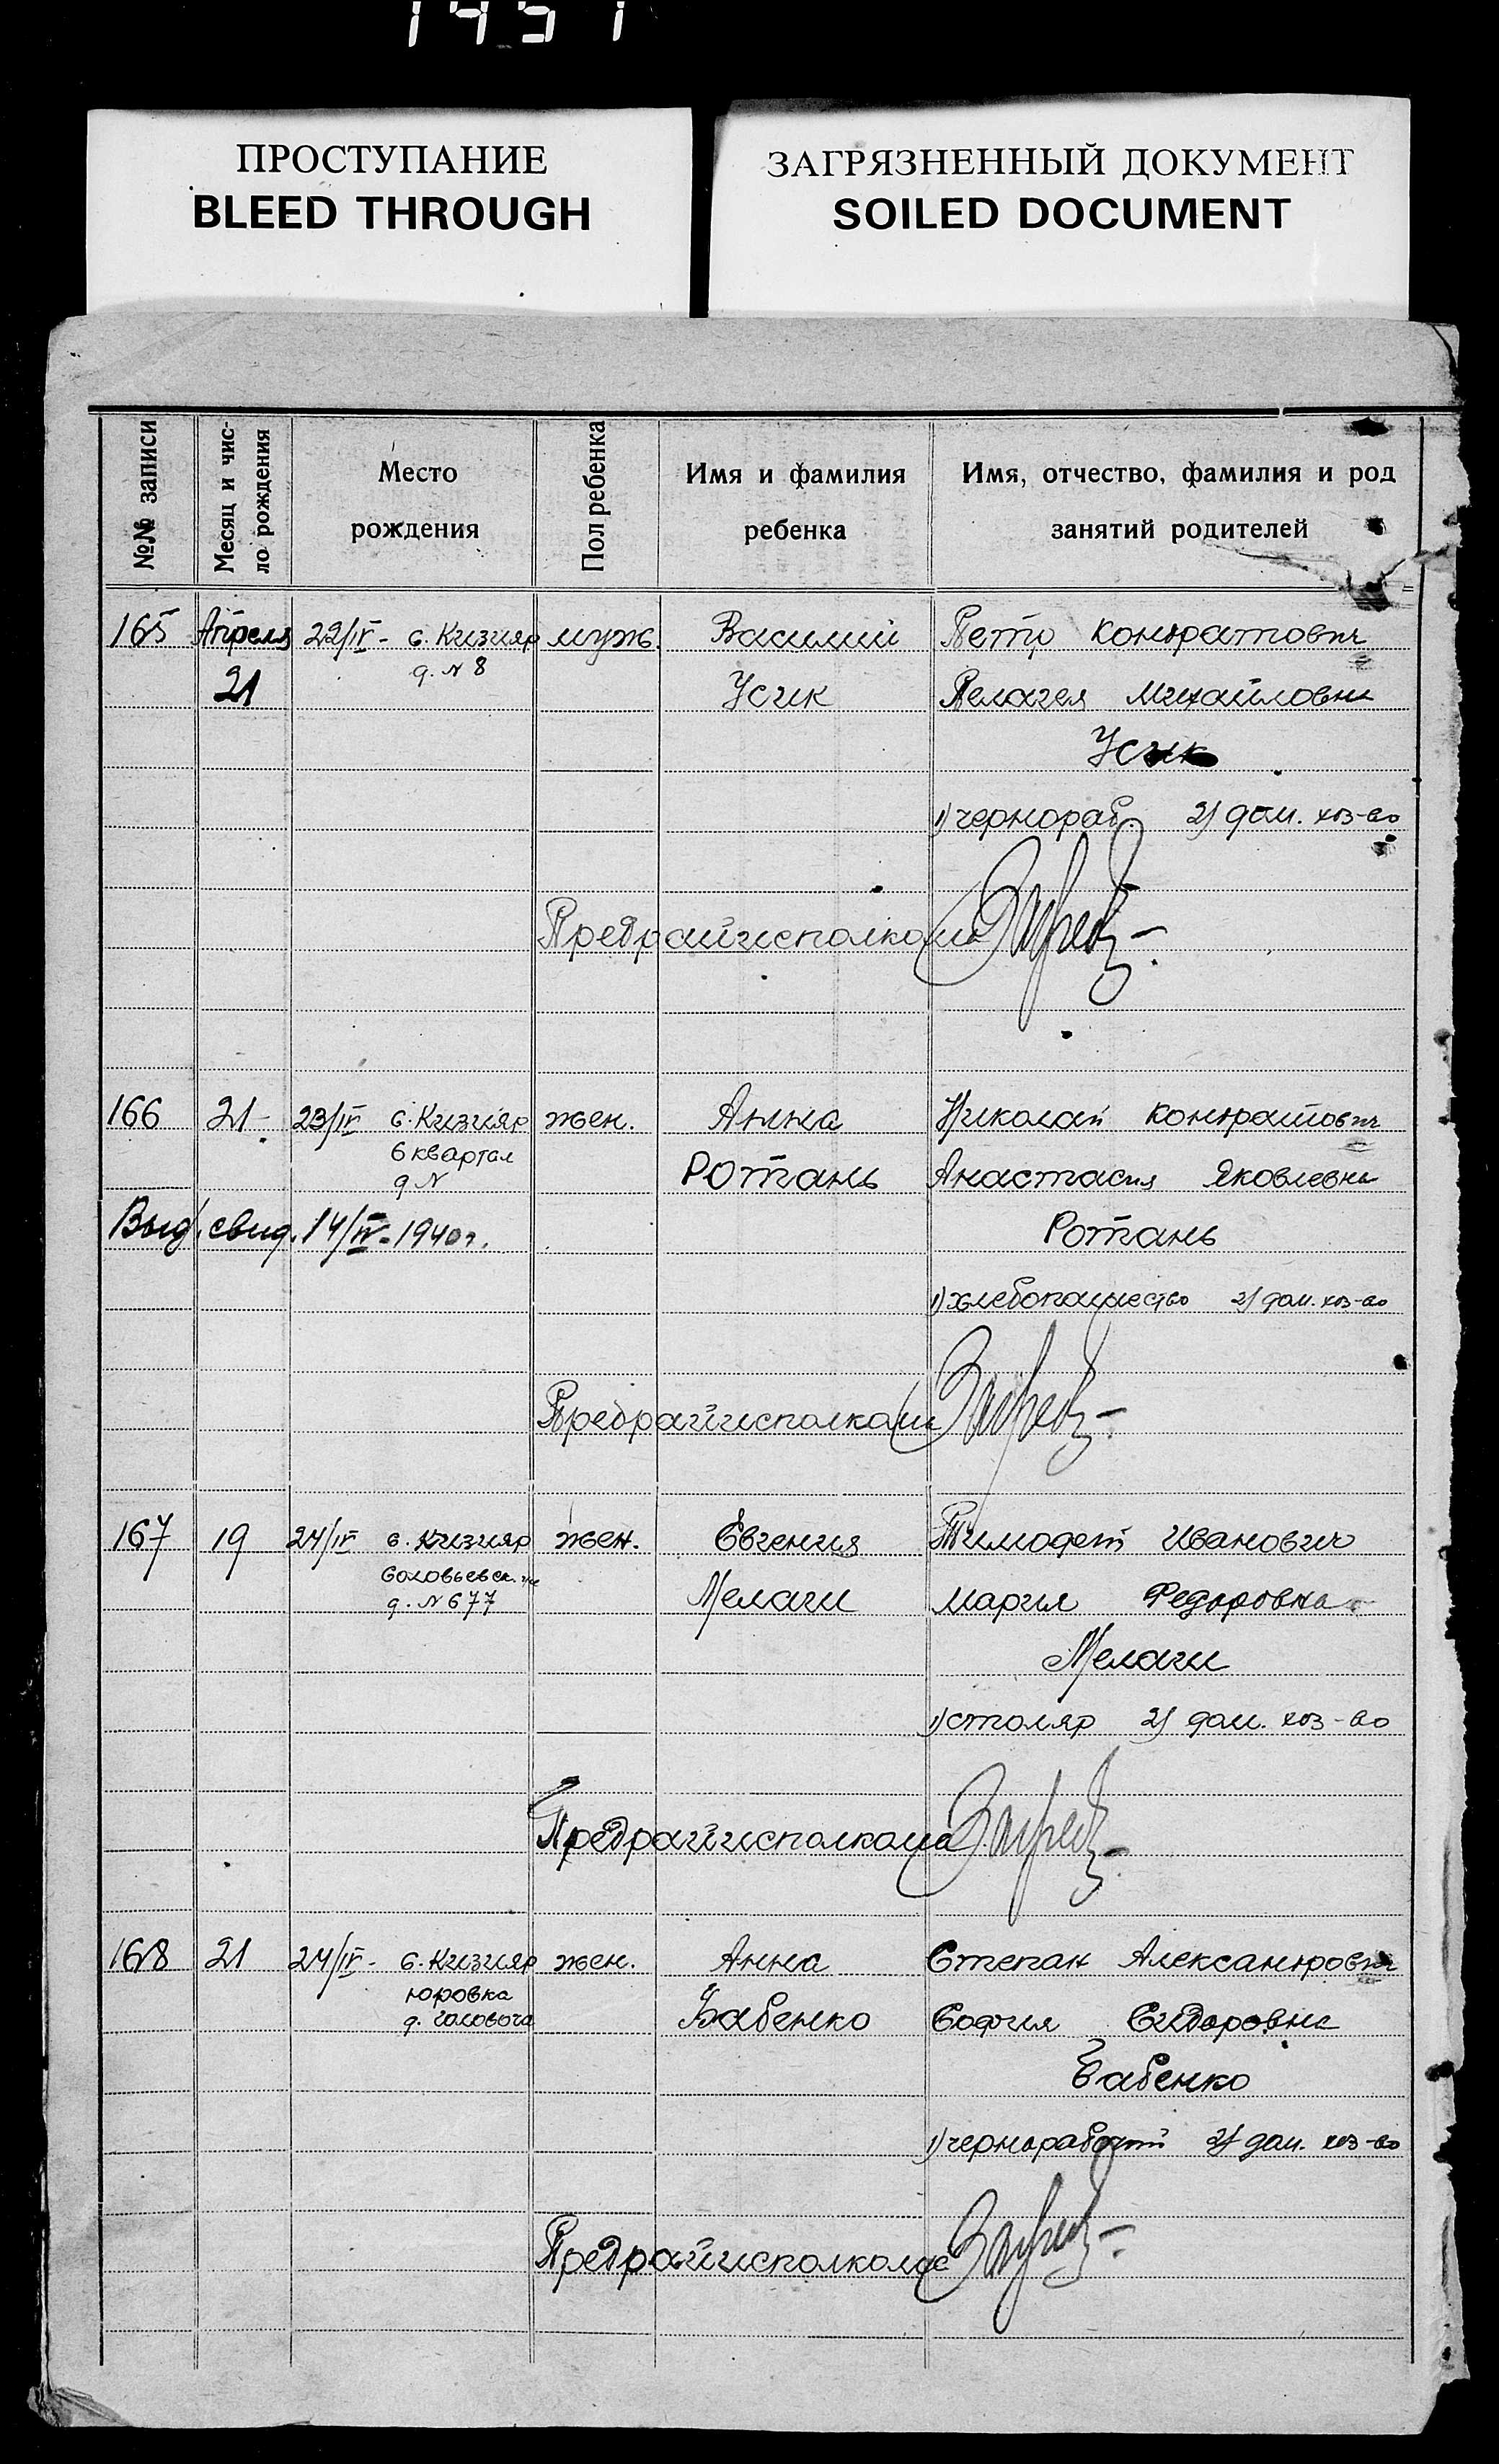 1451
ПРОСТУПАНИЕ
BLEED THROUGH
ЗАГРЯЗНЕННЫЙ ДОКУМЕНТ
SOILED DOCUMENT
№№ записи
Месяц и чис-
ло рождения
Место
рождения
Пол ребенка
Имя и фамилия
ребенка
Имя, отчество, фамилия и род
занятий родителей
165 Апреля 22/IV - с. Кизияр муж. Василий Петр Кондратович
д. N 8
21 Усик Пелагея Михайловна
Усик
1) чернораб. 2) дом. хоз-во
Предрайисполкома
166 21 23/IV с. Кизияр жен. Анна Николай Кондратович
6 квартал
д N Ротань Анастасия Яковлевна
Выд. свид. 14/IV - 1940 г. Ротань
1) хлебопашество 2) дом. хоз-во
Предрайисполкома
167 19 24/IV с. Кизияр жен. Евгения Тимофей Иванович
Соловьевск.
д. N 677 Мелаги Мария Федоровна
Мелаги
1) столяр 2) дом. хоз-во
Предрайисполкома
168 21 24/IV - с. Кизияр жен. Анна Степан Александрович
Юровка
д. Бабенко София Сидоровна
Бабенко
1) чернорабочий 2) дом. хоз-во
Предрайисполкома